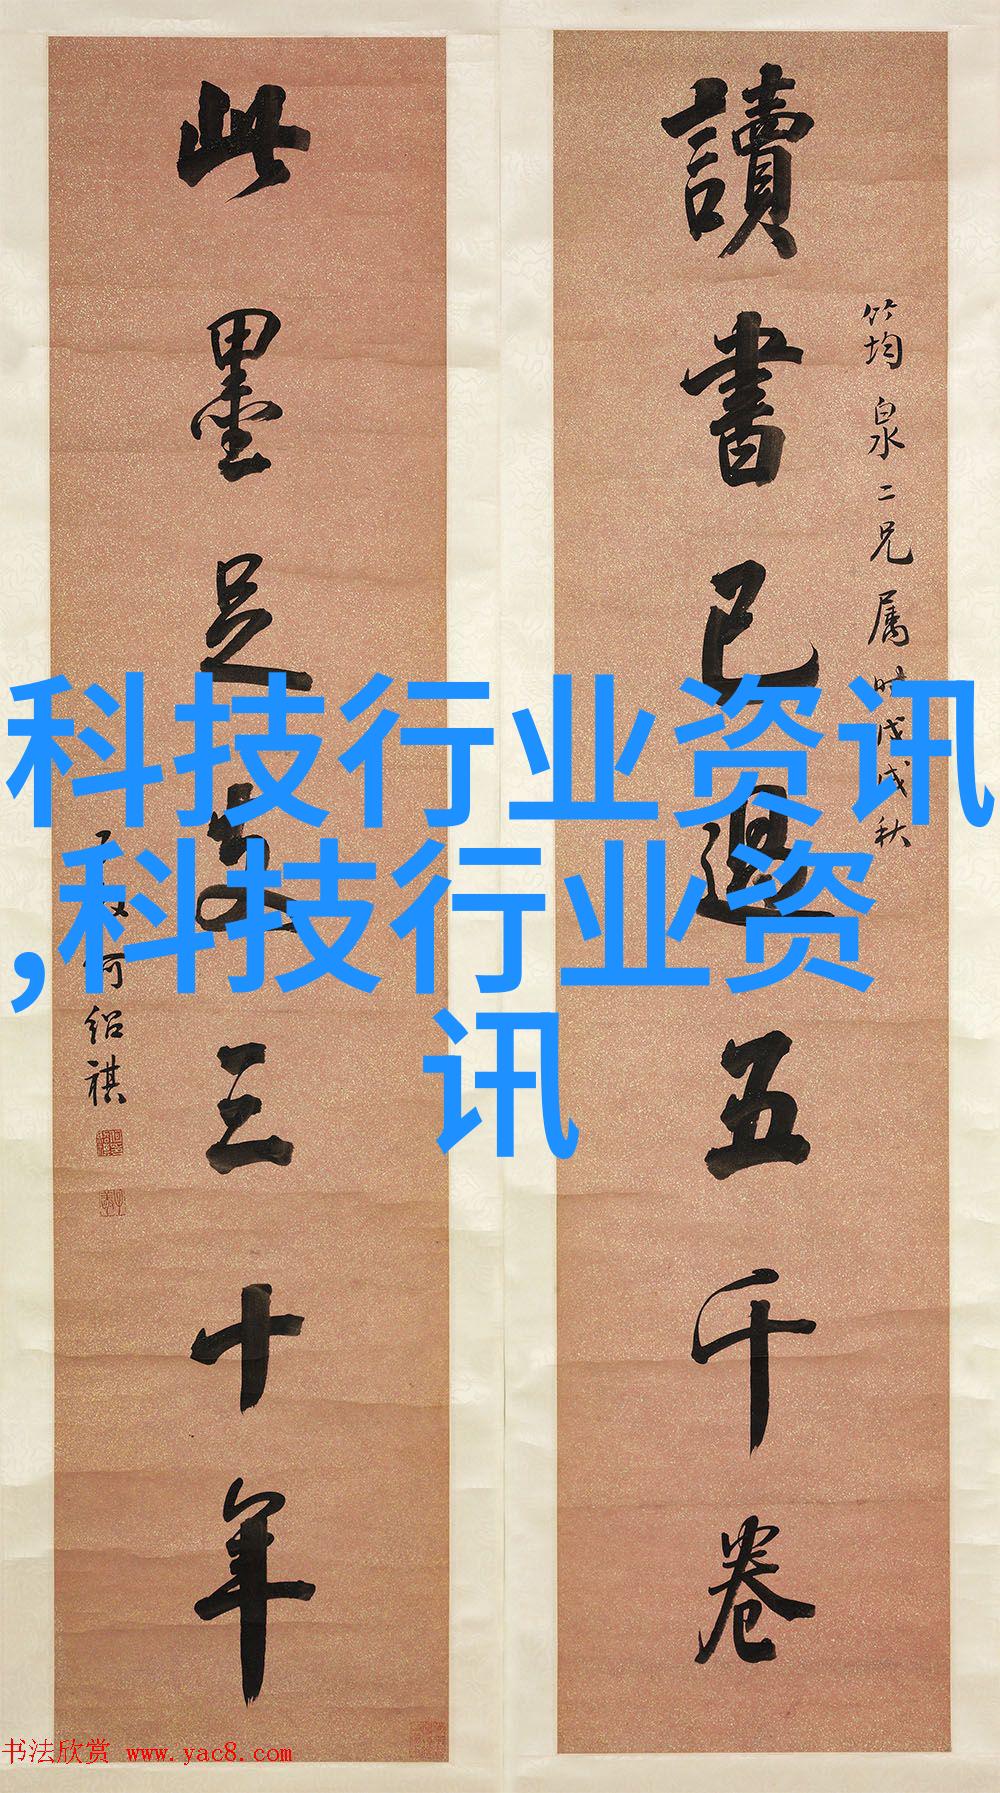 讀書已過五千卷
竹均泉二兄属时戊戌秋
此墨足支三十年
何绍祺
科技行业资讯
,科技行业资
讯
书法欣赏 www.yac8.com